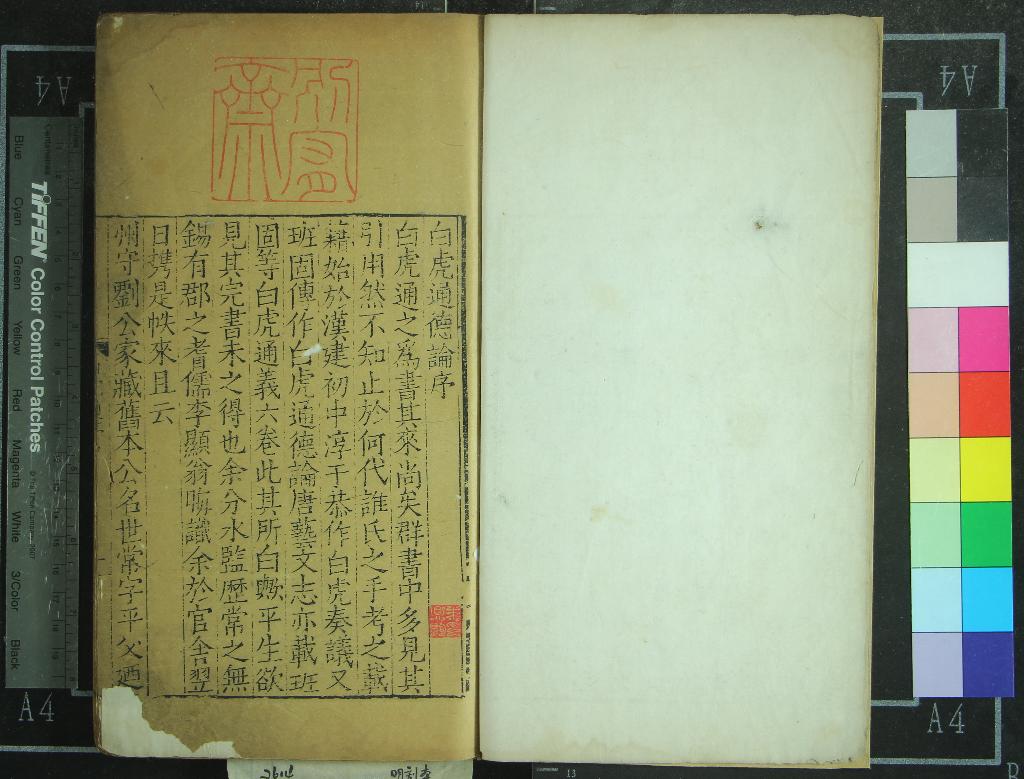 白虎通德論序
白虎通之爲書其來尚矣群書中多見其
引用然不知止於何代誰氏之手考之載
籍始於漢建初中淳于恭作白虎奏議又
班固傳作白虎通德論唐藝文志亦載班
固等白虎通義六卷此其所白歟平生欲
見其完書未之得也余分水監歷常之無
錫有郡之耆儒李顯翁晦識余於官舍翌
日攜是帙來且云
州守劉公家藏舊本公名世常字平父迺
A4
A4
A4
A4
TIFFEN Color Control Patches
Blue
Cyan
Green
Yellow
Red
Magenta
White
3/Color
Black
Centimetres
13